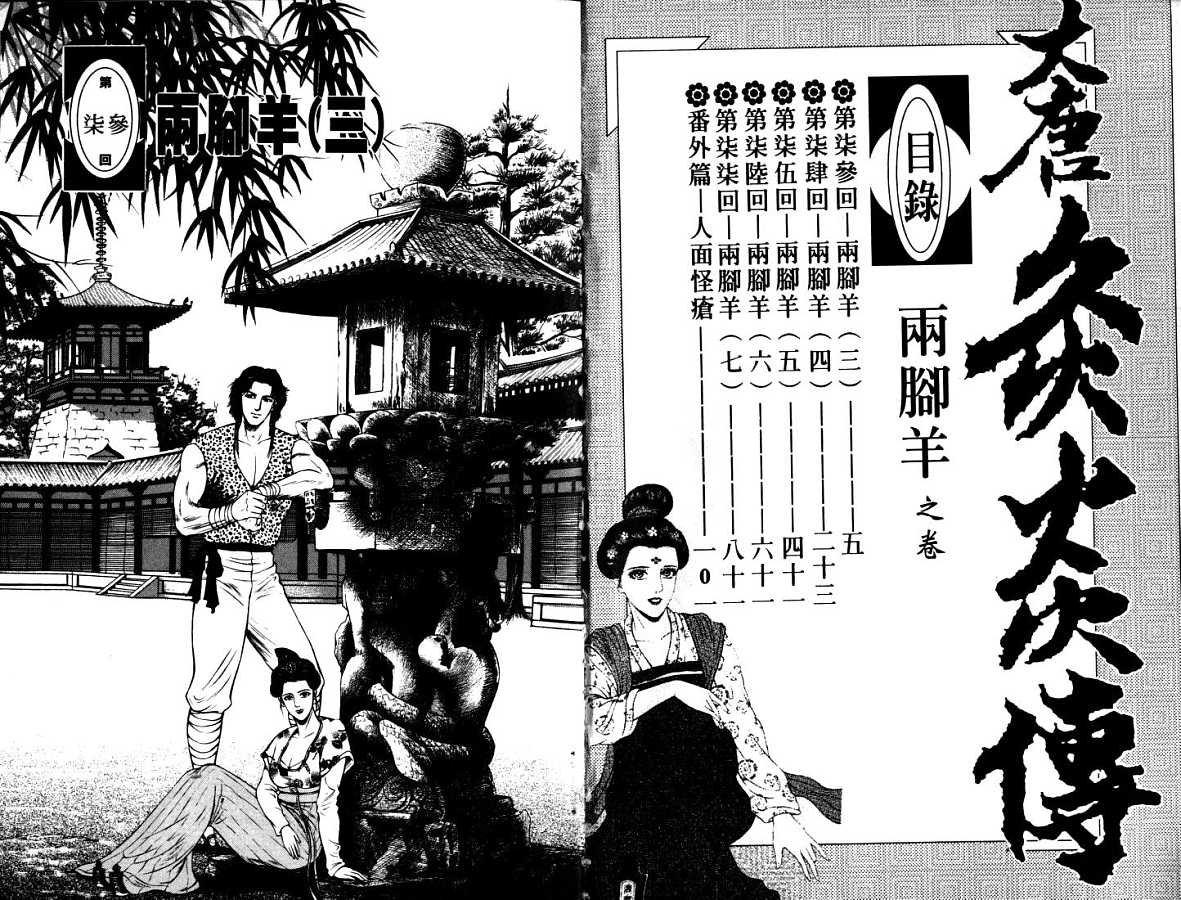 大唐傳
目錄
兩腳羊之卷
第柒參回—兩腳羊(三)——五
第柒肆回—兩腳羊(四)——二十三
第柒伍回—兩腳羊(五)——四十一
第柒陸回—兩腳羊(六)——六十一
第柒柒回—兩腳羊(七)——八十一
番外篇—人面怪瘡——一0一
第柒參回
兩腳羊(三)